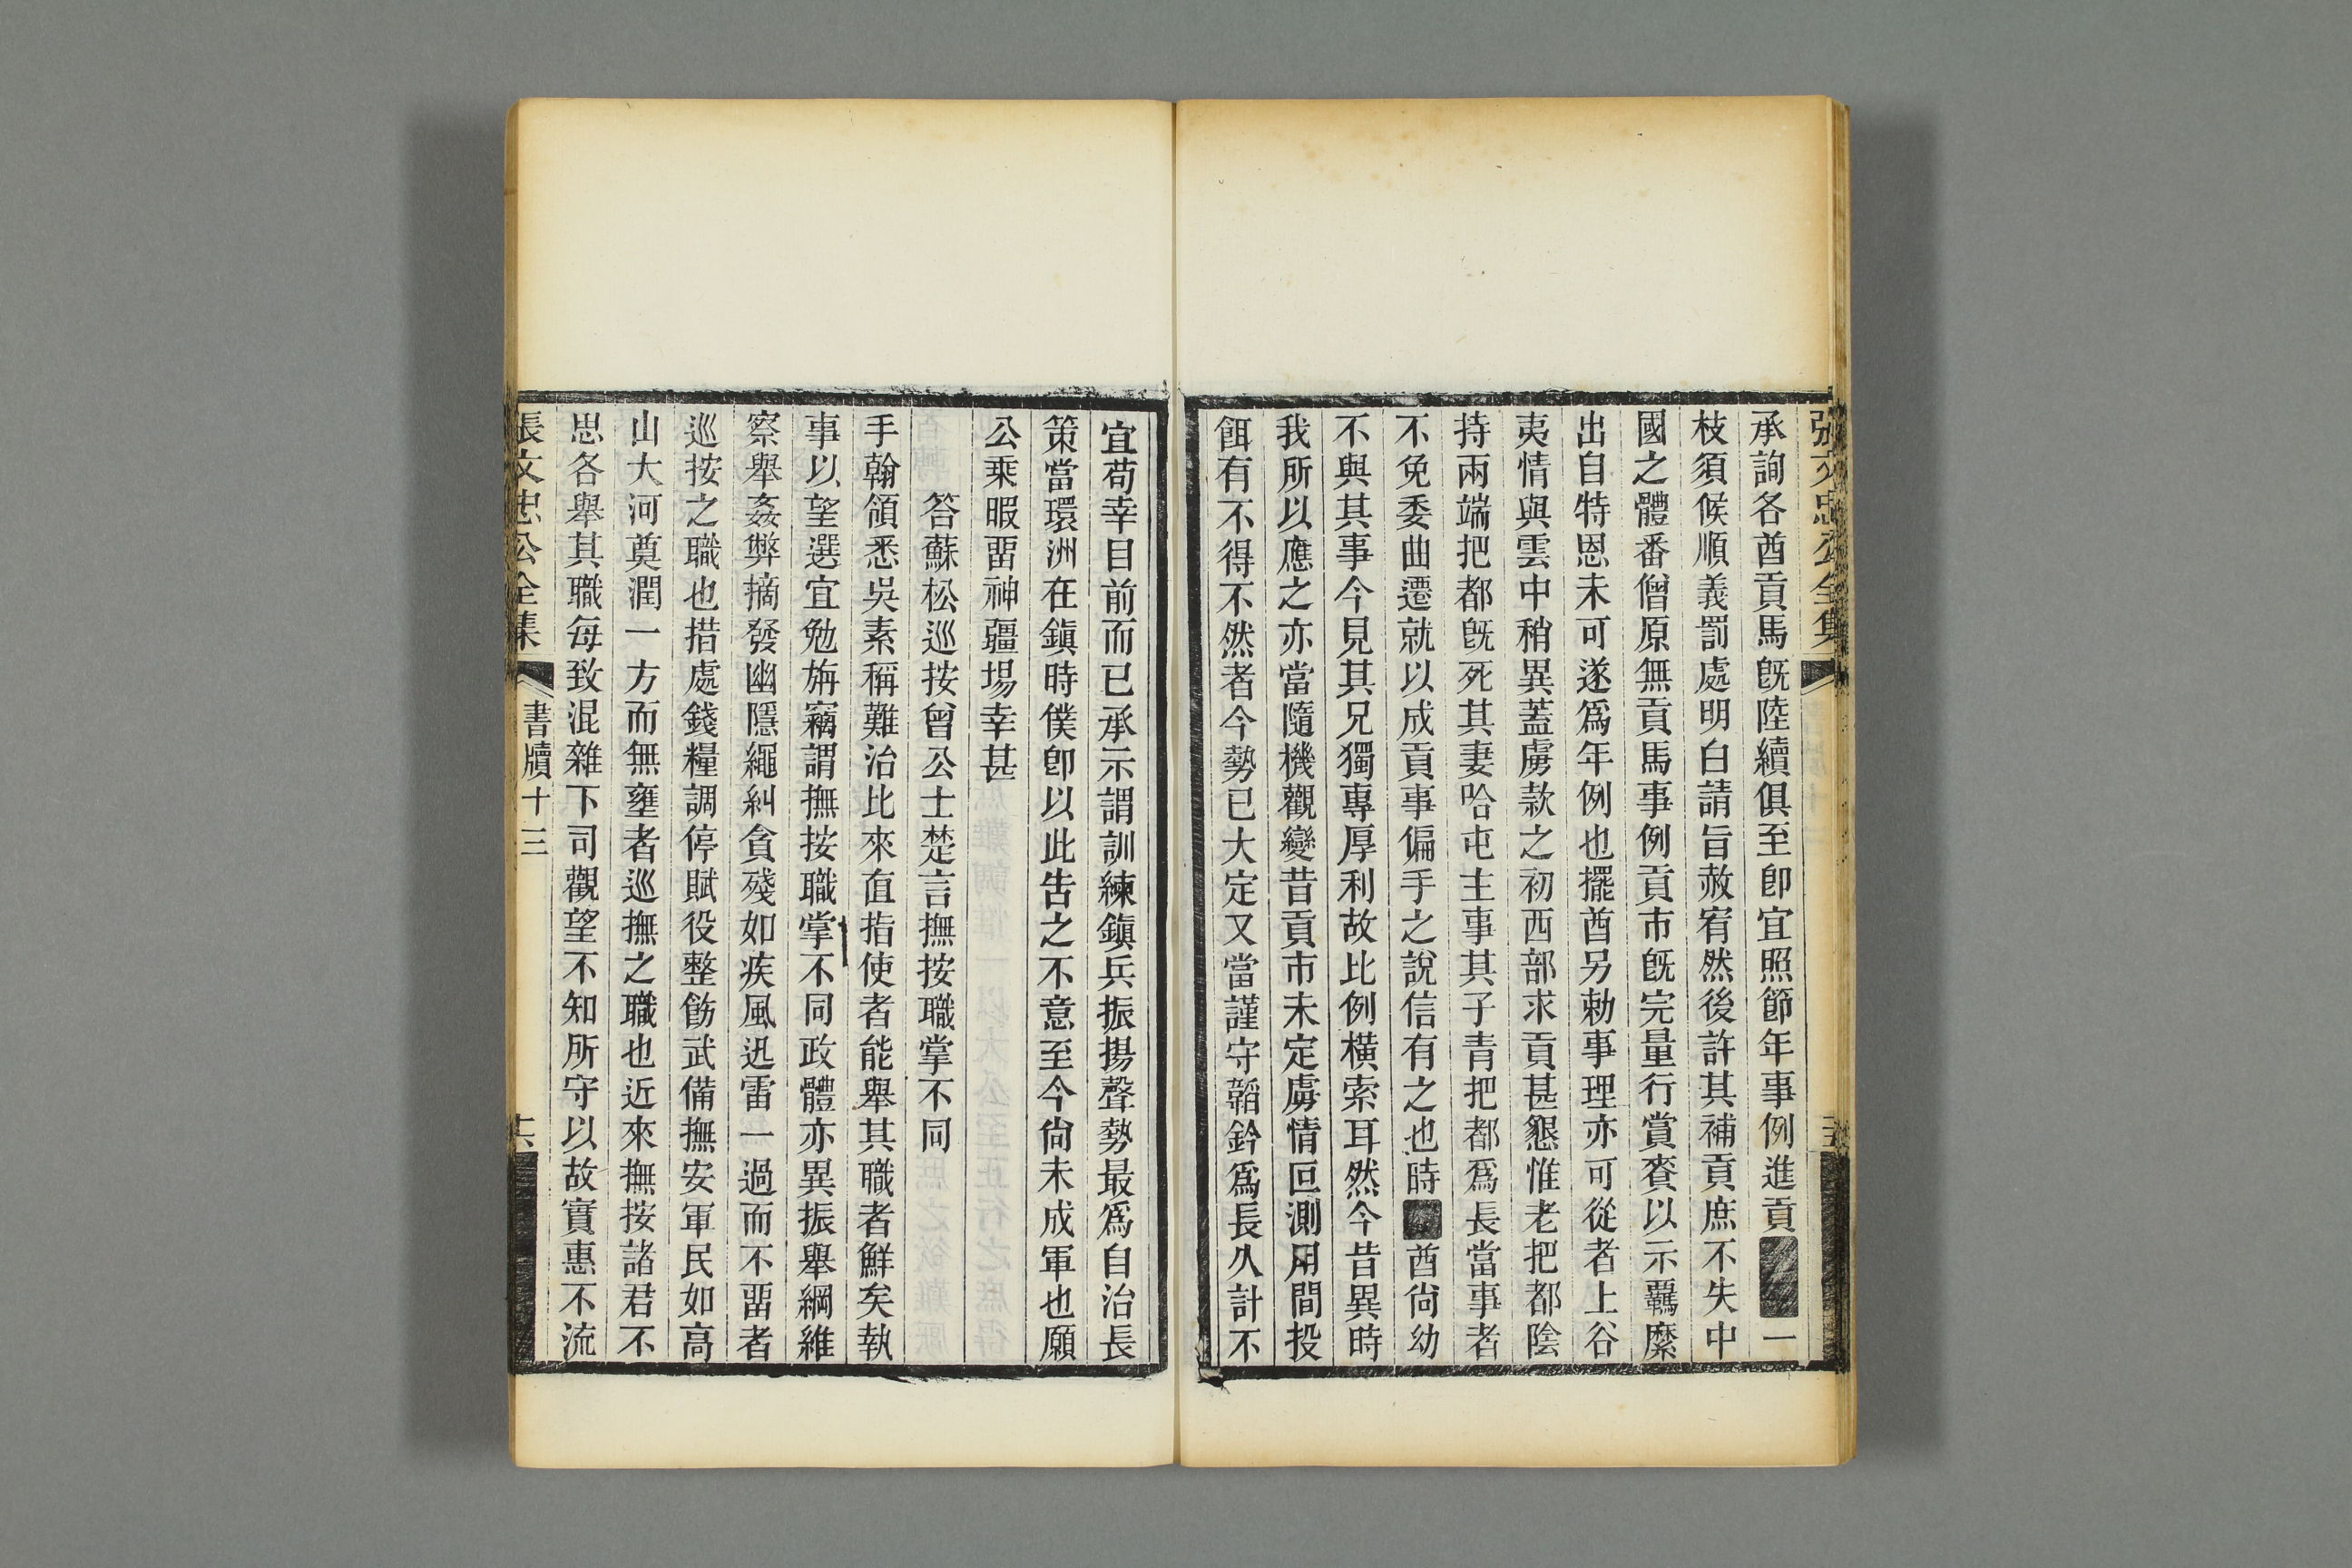 張文忠公全集
承詢各酋貢馬旣陸續俱至卽宜照節年事例進貢一
枝須候順義罰處明白請旨赦宥然後許其補貢庶不失中
國之體番僧原無貢馬事例貢市旣完量行賞賚以示羈縻
出自特恩未可遂爲年例也擺酋另勅事理亦可從者上谷
夷情與雲中稍異蓋虜款之初西部求貢甚懇惟老把都陰
持兩端把都旣死其妻哈屯主事其子青把都爲長當事者
不免委曲遷就以成貢事偏手之說信有之也時酋尙幼
不與其事今見其兄獨專厚利故比例橫索耳然今昔異時
我所以應之亦當隨機觀變昔貢市未定虜情叵測用間投
餌有不得不然者今勢已大定又當謹守韜鈐爲長久計不
宜苟幸目前而已承示謂訓練鎭兵振揚聲勢最爲自治長
策當環洲在鎭時僕卽以此告之不意至今尙未成軍也願
公乘暇畱神疆場幸甚
答蘇松巡按曾公士楚言撫按職掌不同
手翰領悉吳素稱難治比來直指使者能舉其職者鮮矣執
事以望選宜勉旃竊謂撫按職掌不同政體亦異振舉綱維
察舉姦弊摘發幽隱繩糾貪殘如疾風迅雷一過而不畱者
巡按之職也措處錢糧調停賦役整飭武備撫安軍民如高
山大河奠潤一方而無壅者巡撫之職也近來撫按諸君不
思各舉其職每致混雜下司觀望不知所守以故實惠不流
張文忠公全集 書牘十三 十六